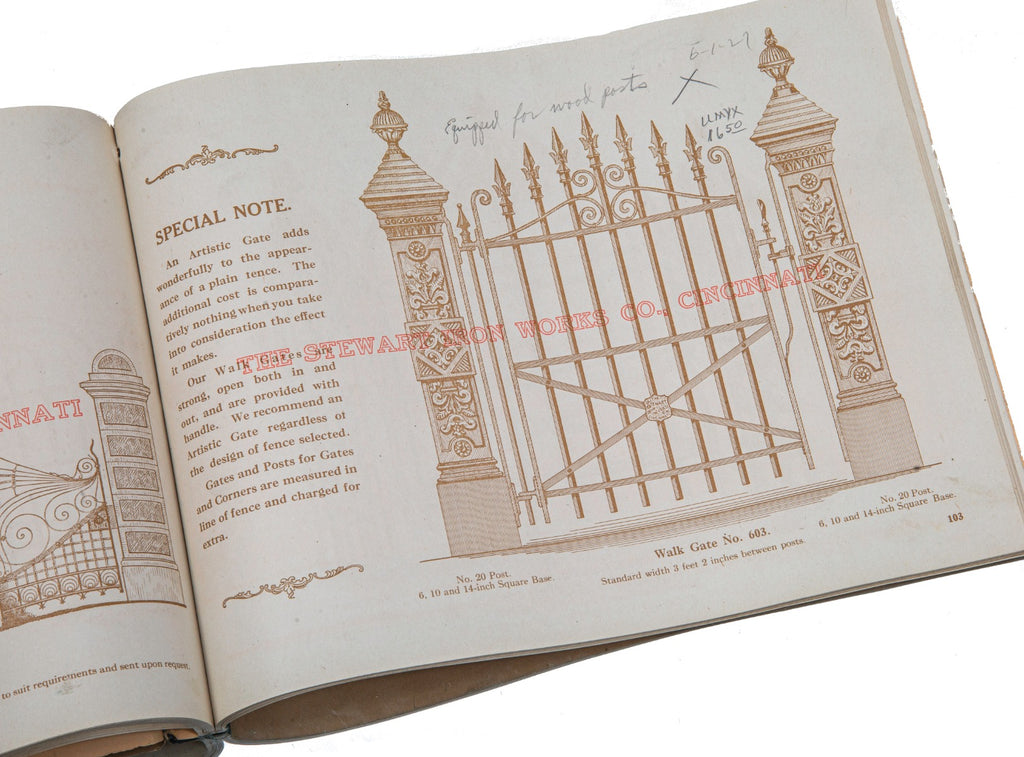 NNATI
to suit requirements and sent upon request.
SPECIAL NOTE.
An Artistic Gate adds
wonderfully to the appear-
ance of a plain fence. The
additional cost is compara-
tively nothing when you take
into consideration the effect
it makes.
Our Walk Gates are
strong, open both in and
out, and are provided with
handle. We recommend an
Artistic Gate regardless of
the design of fence selected.
Gates and Posts for Gates
and Corners are measured in
line of fence and charged for
extra.
Equipped for wood posts
X
THE STEWART IRON WORKS CO., CINCINNATI
No. 20 Post.
6, 10 and 14-inch Square Base.
Walk Gate No. 603.
Standard width 3 feet 2 inches between posts.
No. 20 Post.
6, 10 and 14-inch Square Base.
103